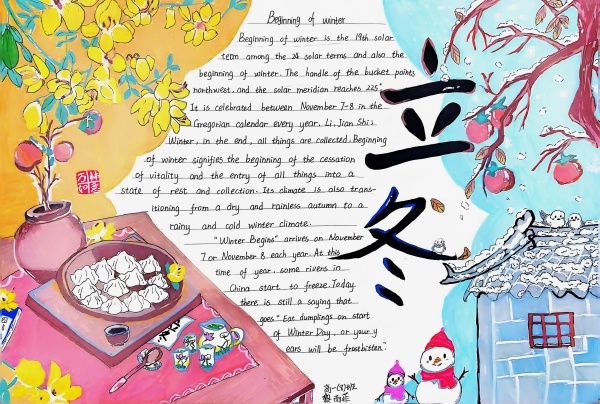 Beginning of winter
Beginning of winter is the 19th solar
term among the 24 solar terms and also the
beginning of winter. The handle of the bucket points
northwest. and the solar meridian reaches 225°
It is celebrated between November 7-8 in the
Gregorian calendar every year. Li, Jian Shi;
Winter, in the end, all things are collected. Beginning
of winter signifies the beginning of the cessation
of vitality and the entry of all things into a
state of rest and collection. Its climate is also trans-
itioning from a dry and rainless autumn to a
rainy and cold winter climate.
"Winter Begins" arrives on November
7 or November 8 each year. At this
time of year, some rivers in
China start to freeze. Today
there is still a saying that
goes "Eat dumplings on start
of Winter Day, or your y
ears will be frostbitten".
立冬
立冬